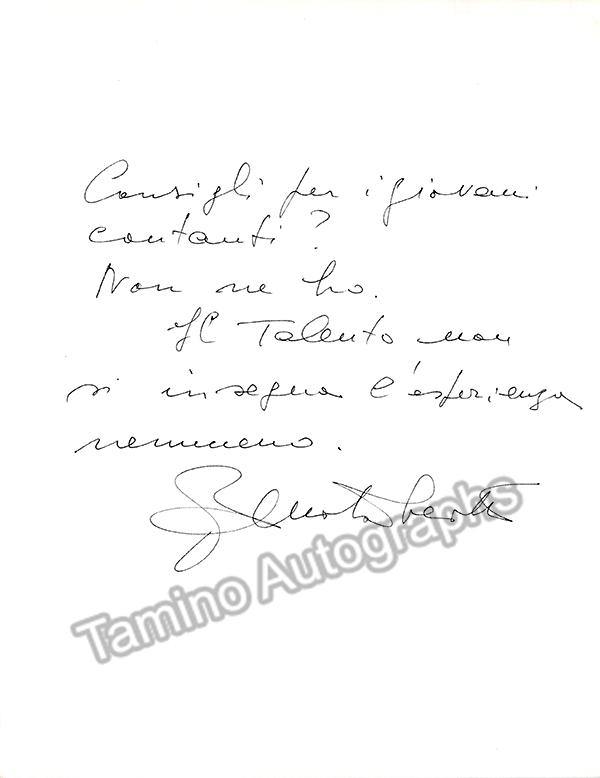 Consigli per i giovani
cantanti?
Non ne ho.
Il Talento non
si insegna l'esperienza
nemmeno.
Tamino Autographs